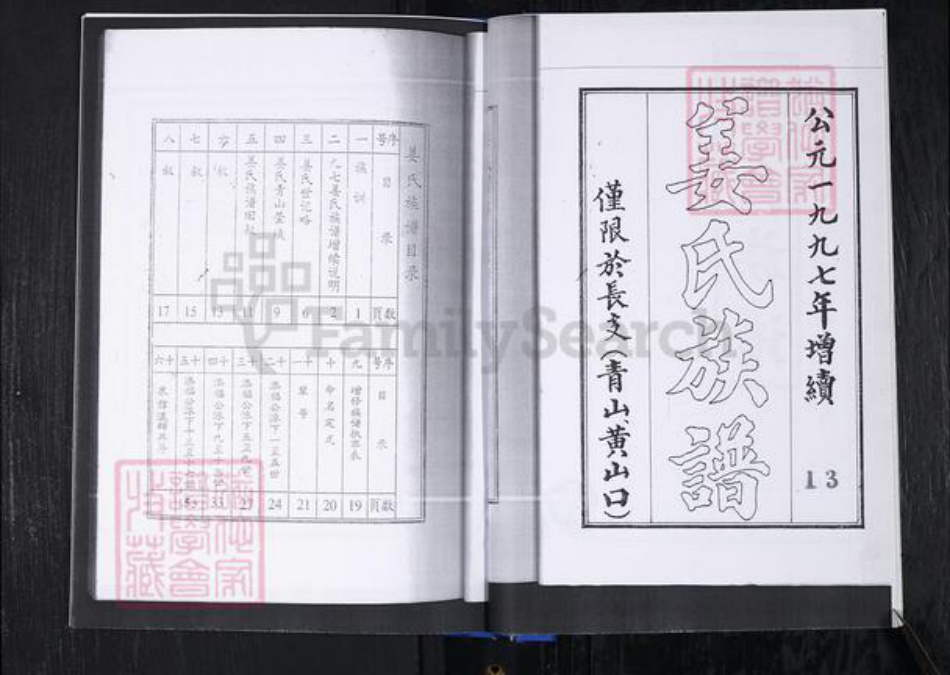 公元一九九七年增續
13
姜氏族譜
僅限於長支（青山、黃山口）
姜氏族譜目录
序号 目录 頁数
一 族訓 1
二 九七姜氏族譜增续说明 2
三 姜氏世记略 6
四 姜氏青山茔 9
五 姜氏族谱 11
六 叙 13
七 叙 15
八 叙 17
序号 目录 頁数
九 增修族谱 19
十 命名定凡 20
十一 21
十二 公派下一至五世 24
十三 公派下五至九世 27
十四 公派下九至十 33
十五 公派下十三至十
十六
FamilySearch